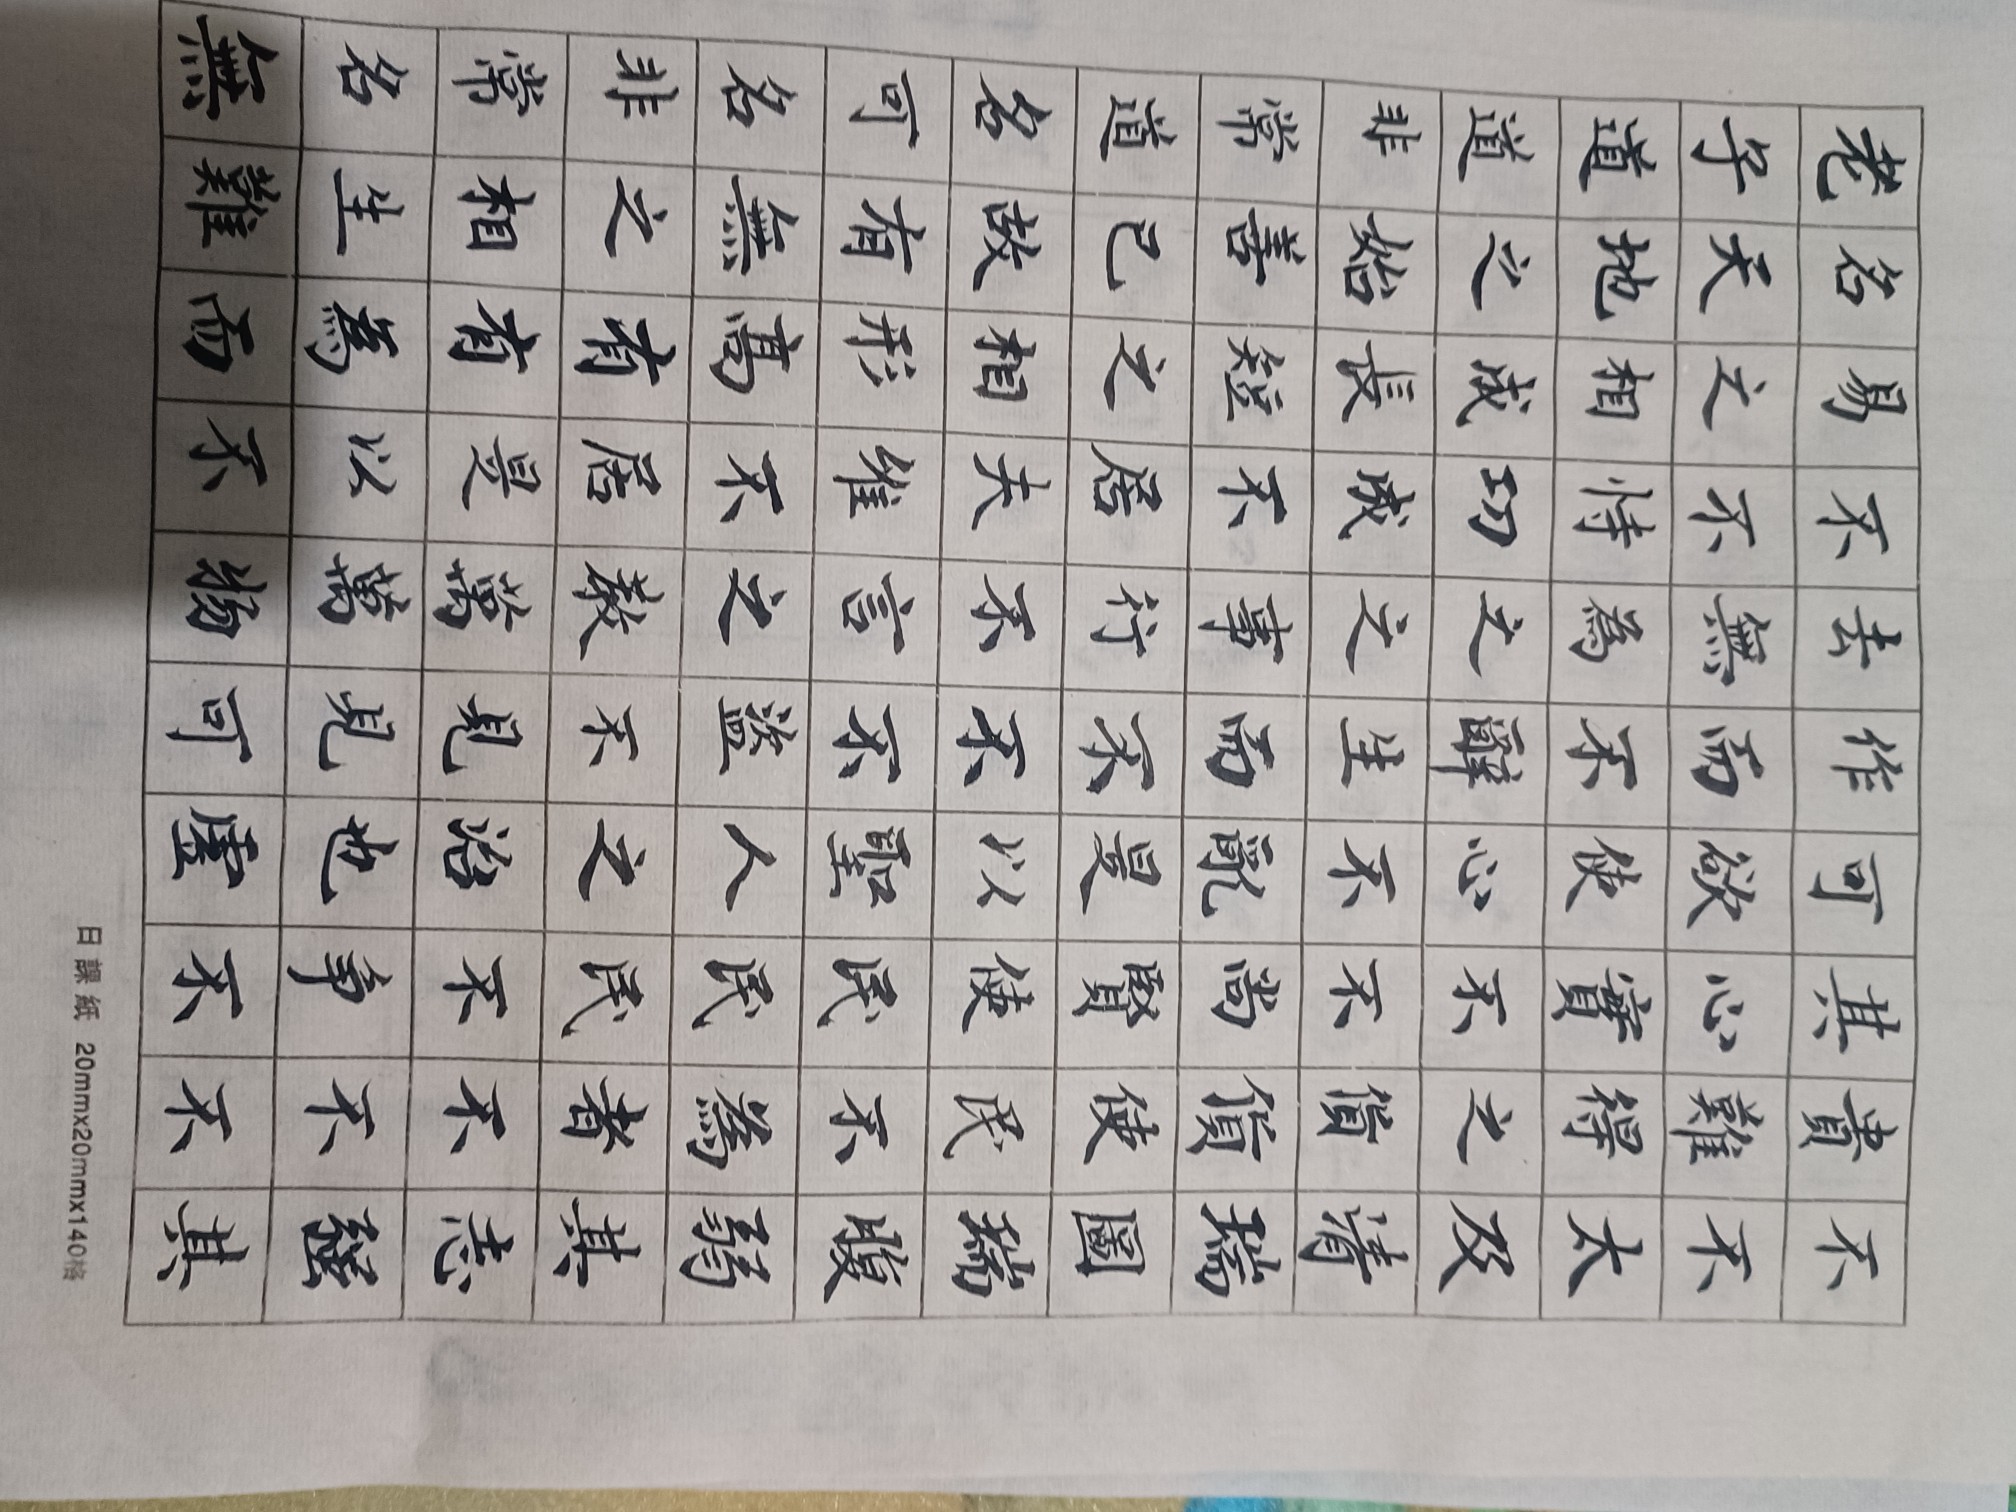 老子道道非常道名可名非常名無
名天地之始善已故有無之相生難
易之相成長短之相形高有有為而
不不恃功成不居夫維不居是以不
去無為之之事行不言之教萬萬物
作而不辭生而不不不盜不見見可
可欲使心不亂是以聖人之治也虛
其心實不不尚賢使民民民不爭不
貴難得之貨貨使民不為者不不不
不不太及清瑞圖瑞腹弱其志強其
日課紙 20mmx20mmx140格